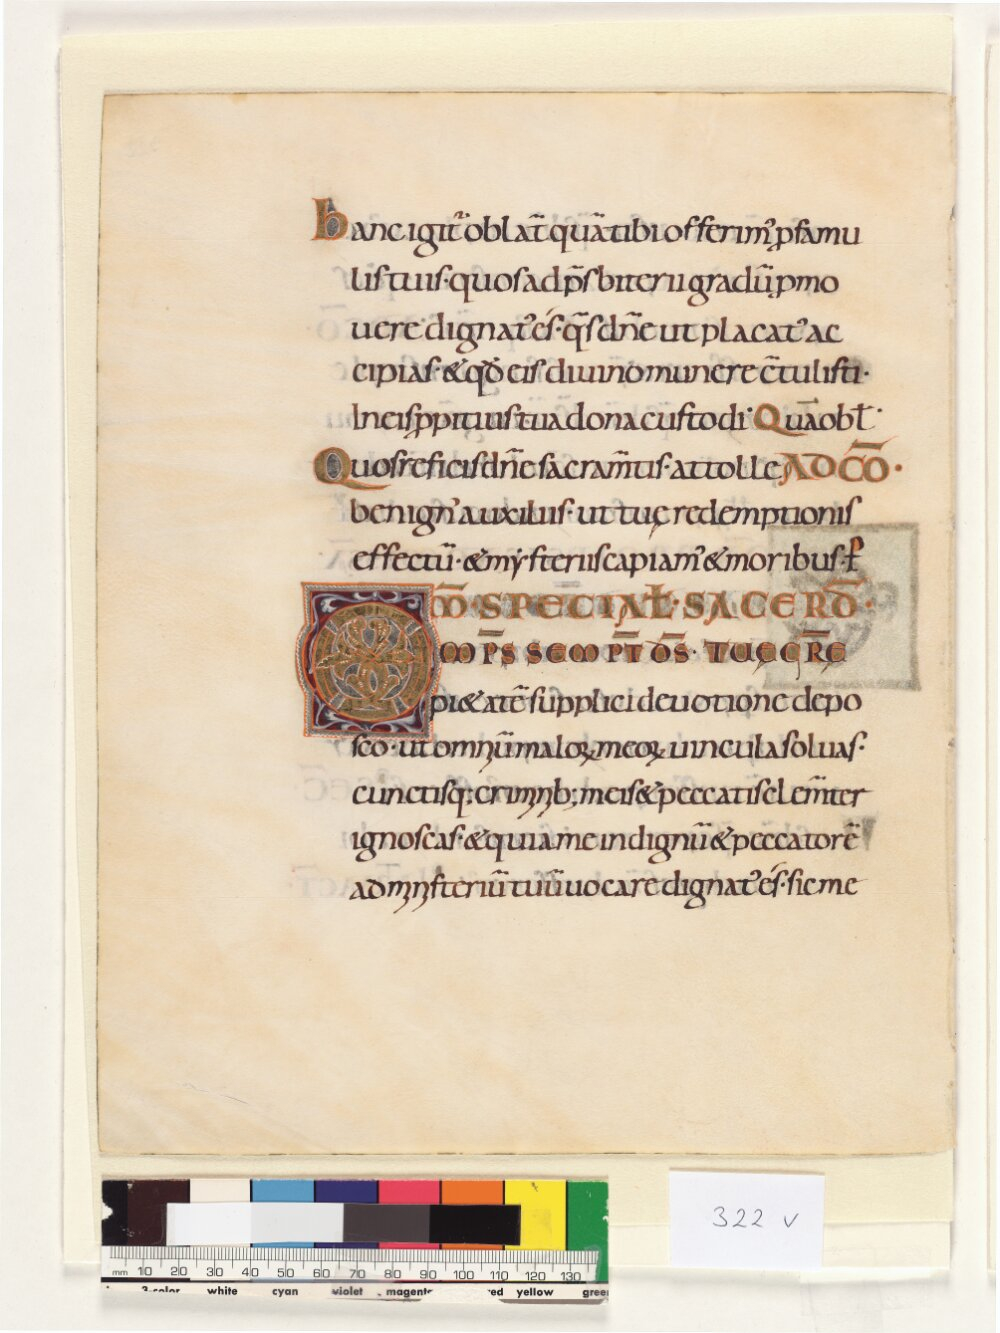 hanc igit᷑ oblat̄ quā tibi offerim᷒ ꝓ famu
lis tuis· quos ad p̄sbiterii gradū ꝓmo
uere dignat᷒ és· q̄s dn̄e ut placat᷒ ac
cipias· & qđ eis diuino munere c̄tulisti·
In eis ꝓpitius tua dona custodi· Quā obł·
Quos reficis dn̄e sacram̄tis· attolle AD CŌ·
benign᷒ auxiliis· ut tuę redemptionis
effectū· & mẏsteriis capiam᷒ & moribus· P̄
M̄· SPECIAŁ· SACERD̄·
OM̄PS SEMPT̄ D̄S· TUĘ GR̄E
pi&atē supplici deuotione depo
sco· ut omniū maloꝝ meoꝝ uincula soluas·
cunctisq; criminib; meis & peccatis clem̄ter
ignoscas· & quia me indignū & peccatorē
ad ministeriū tuū uocare dignat᷒ és· sic me
3-color white cyan violet magenta red yellow green
mm 10 20 30 40 50 60 70 80 90 100 110 120 130
322 v